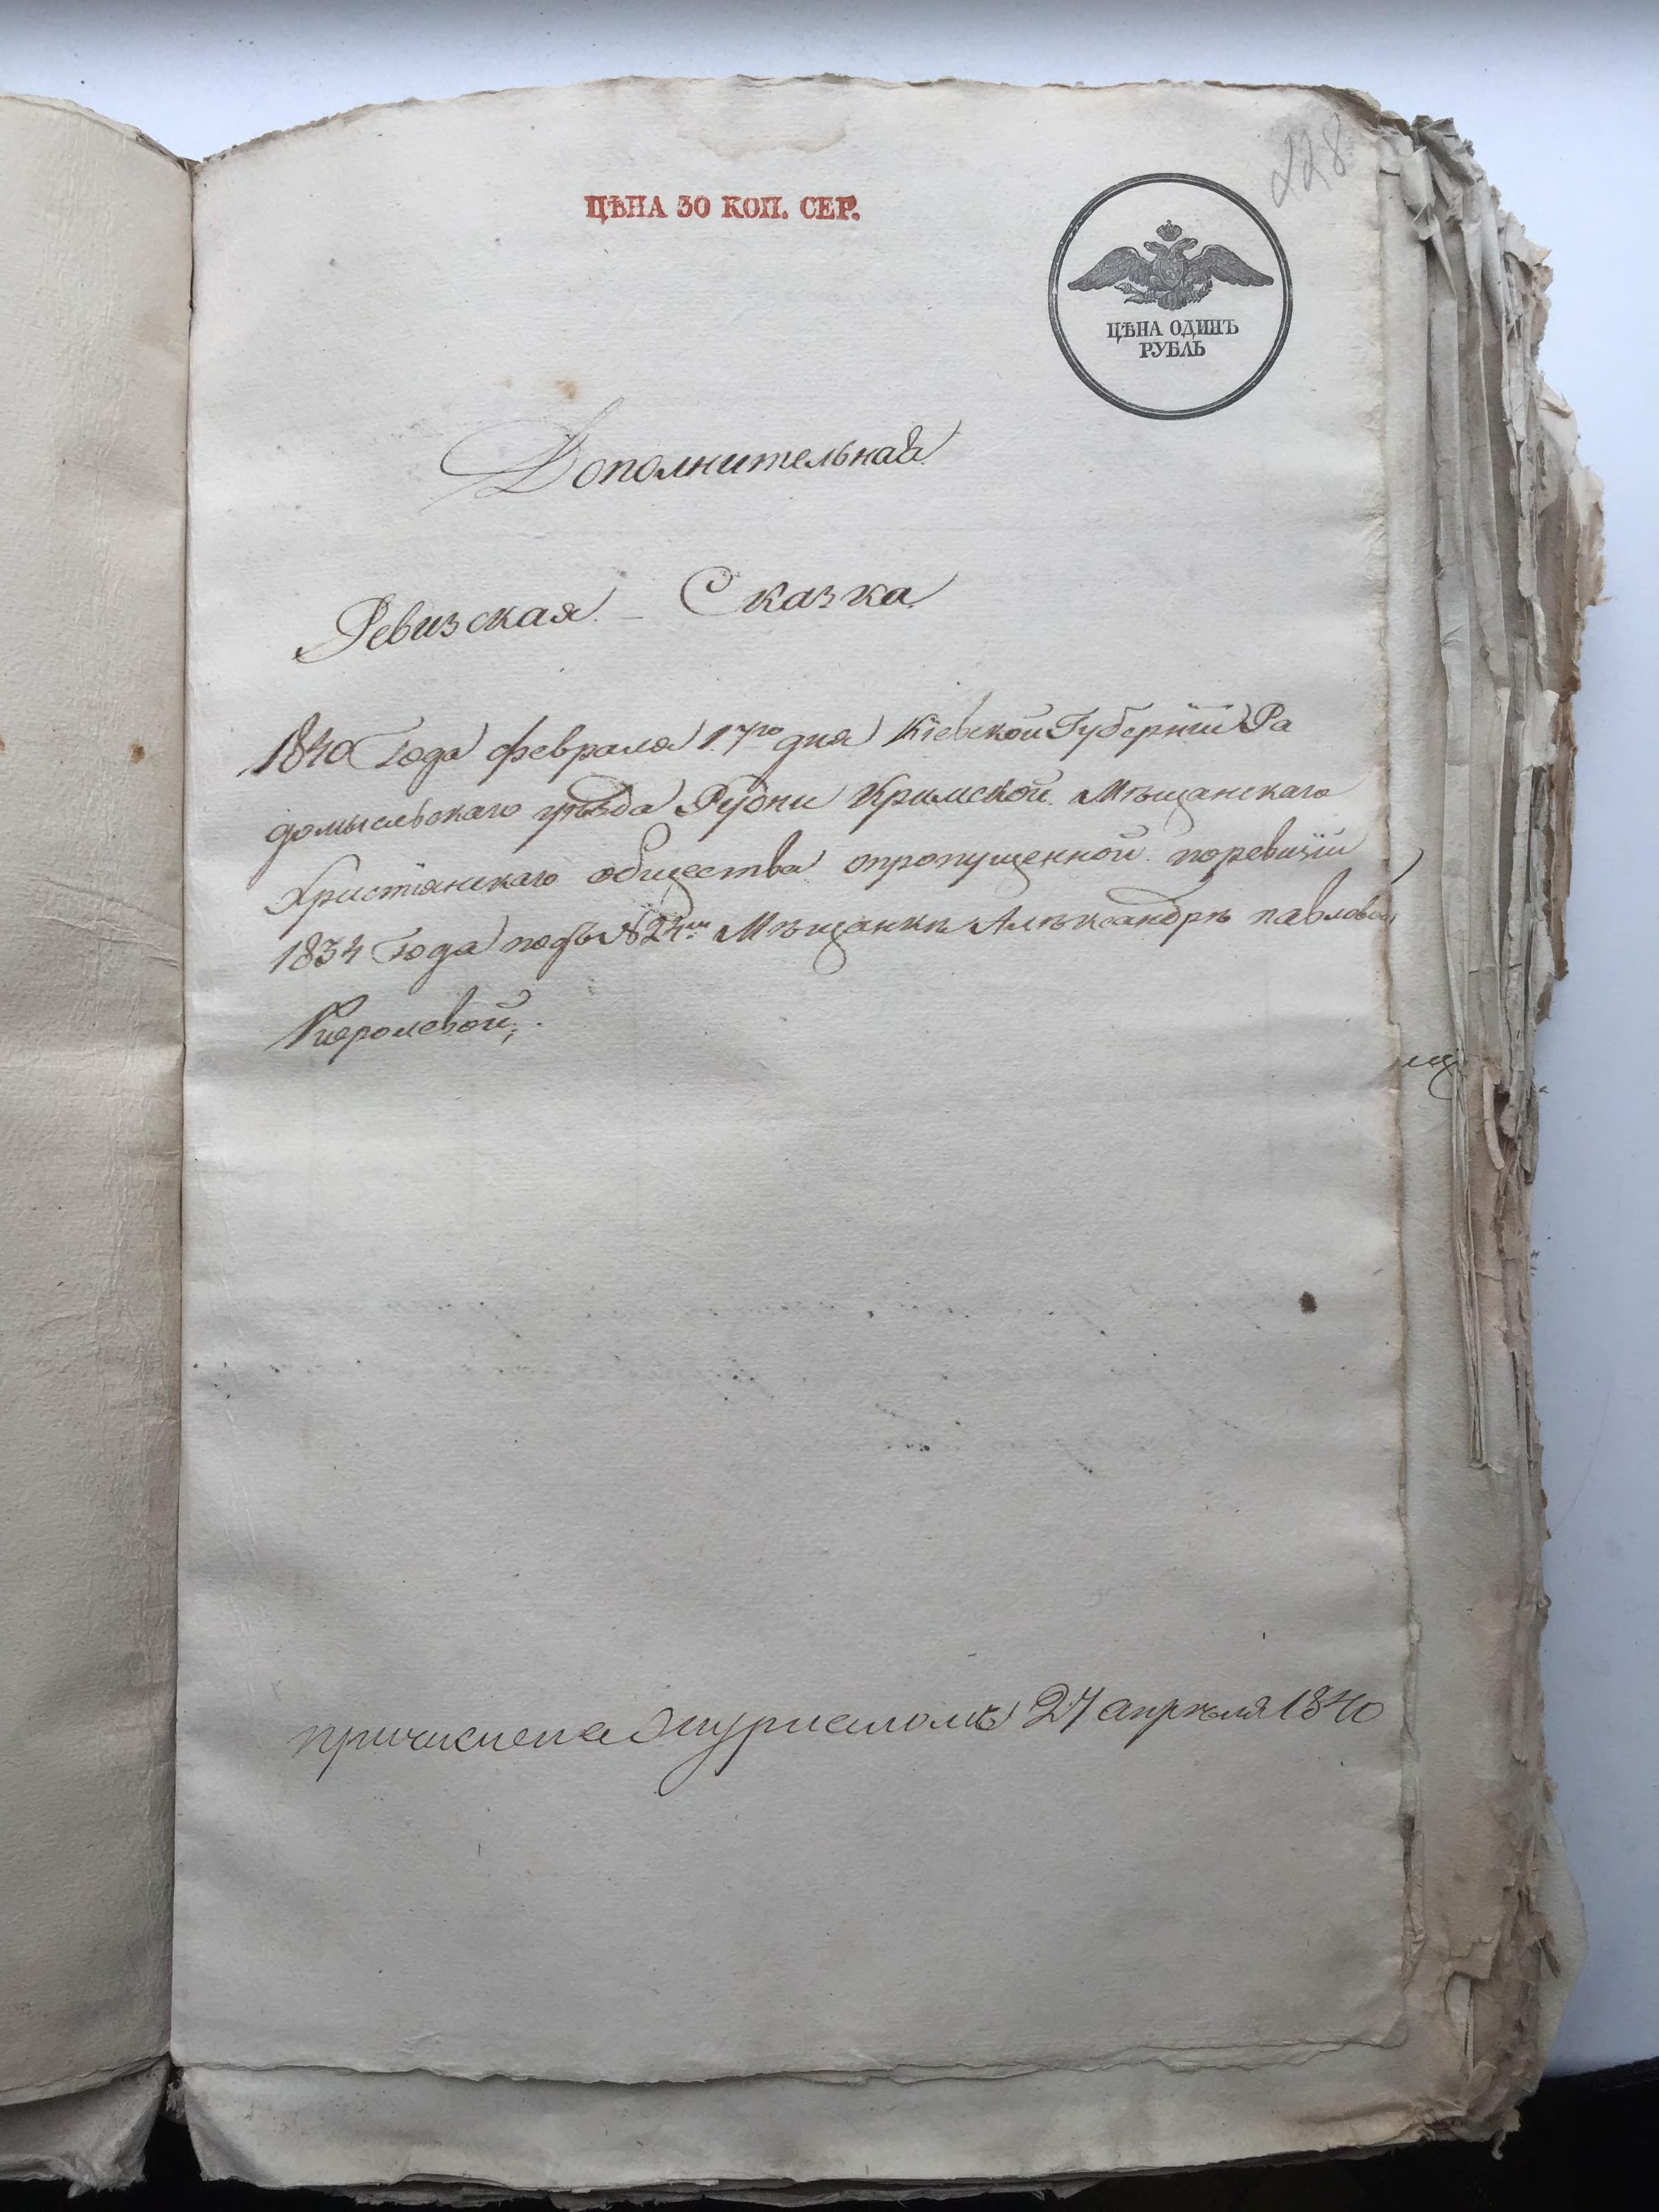 228
ЦѢНА 30 КОП. СЕР.
ЦѢНА ОДИНЪ
РУБЛЬ
Дополнительная
Ревизская Сказка
1840 Года февраля 17го дня Кіевской Губерніи Ра
домысльскаго уѣзда Рудни Кримской Мѣщанскаго
Христіянскаго общества опропущенной поревизіи
1834 Года подъ № 24м Мѣщанкѣ Алѣксандрѣ павловой
причислена Журналомъ 27 апрѣля 1840